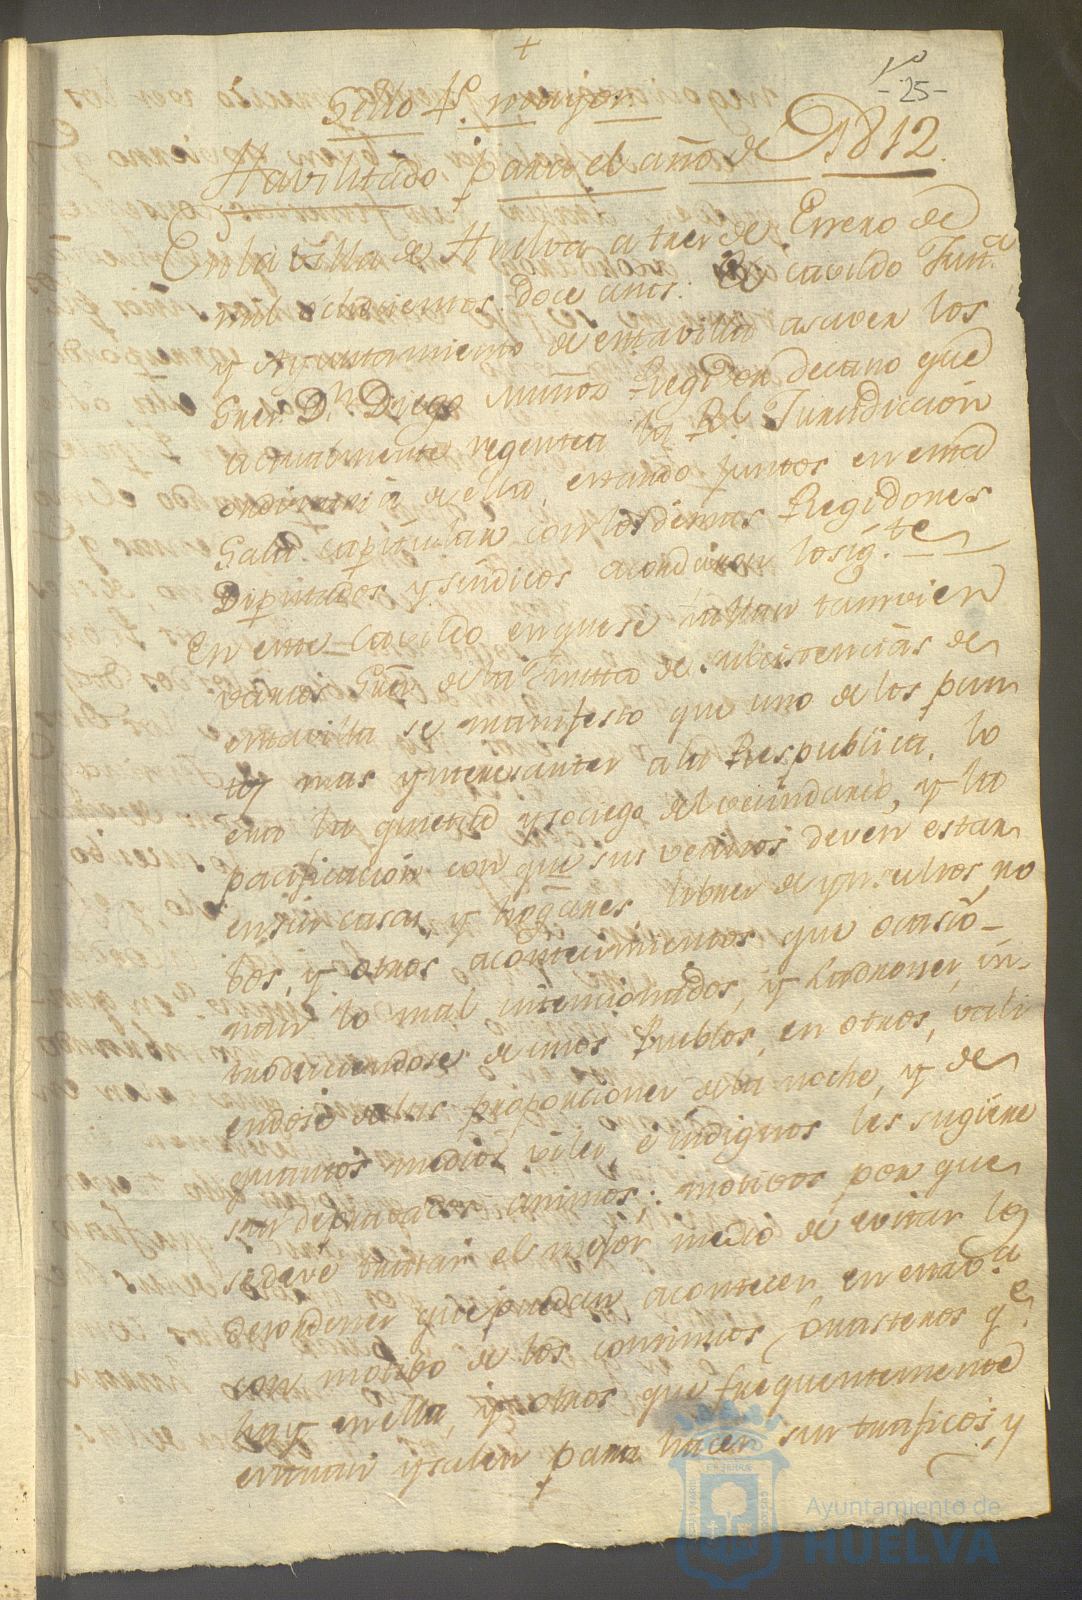 +
Vº
-25-
Sello 4º. mayor
Havilitado, para el año de 1812.
En la villa de Huelva a tres de Enero de
mil ochocientos doce años: El cavildo Junª
y Ayuntamiento de esta villa asaver los
Sres. Dn. Diego Muñoz Regidor decano que
actualmente regenta la Rl. Jurisdiccion
ordinaria de ella, estando juntos en esta
Sala capitular con los demas Regidores
Diputados y sindicos acordaron lo sigte.
En este Cavildo en que se hallan tamvien
varios Sres. de la Junta de subcistencias de
esta villa se manifesto que uno de los pun
tos mas ynteresantes a la Respublica, lo
era la quietud y sociego del vecindario, y la
pacificacion con que sus vecinos deven estar
en sus casas, y hogares, libres de ynsultos, ro
bos, y otros acontecimientos que ocasio-
nan lo mal intencionados, y Ladrones, in-
troduciendose de unos Pueblos, en otros, vali
endose de las proporciones de la noche, y de
quantos medios viles, e indignos les sugiere
sus depravados animos; motivos por que
se deve tratar el mejor medio de evitar los
desordenes que puedan acontecer en esta va
con motibo de los continuos forasteros qe.
hay en ella, y otros que frequentemente
entran y salen para hacer sus traficos, y
Ayuntamiento de
HUELVA